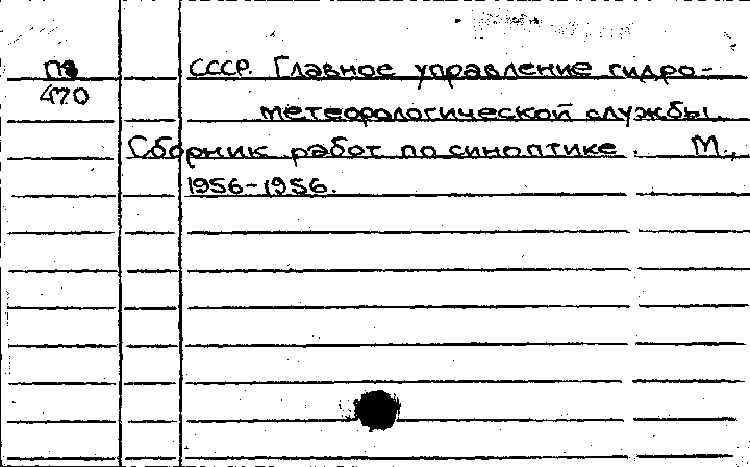 П8 СССР. Главное управление гидро-
470 метеорологической службы.
Сборник работ по синоптике. М.,
1956-1956.